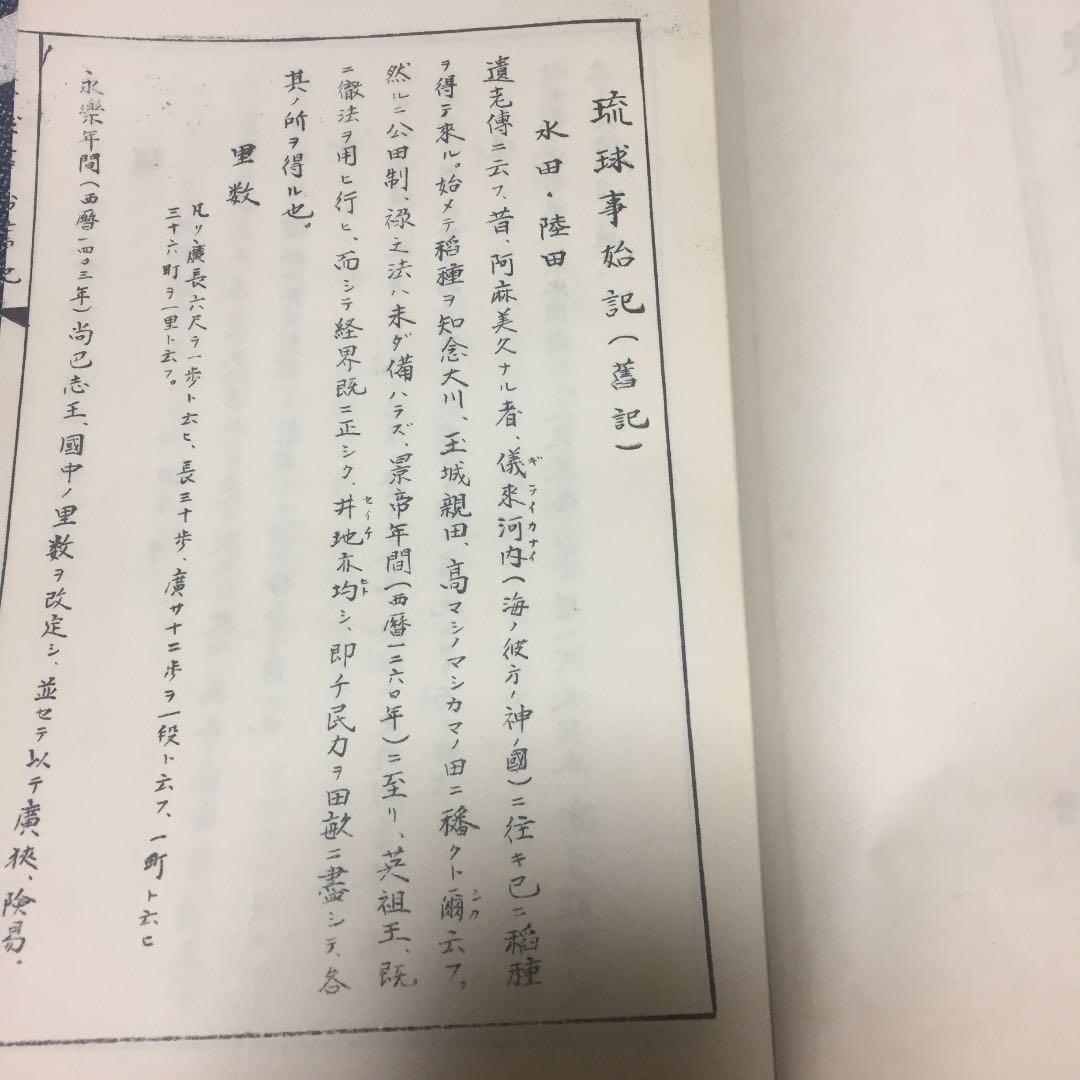 琉球事始記(舊記)
水田・陸田
遺老傳ニ云フ、昔、阿麻美久ナル者、儀來河内(海ノ彼方ノ神ノ國)ニ往キ已ニ稻種
ギライカナイ
ヲ得テ來ル。始メテ稻種ヲ知念大川、玉城親田、高マシノマシカマノ田ニ播クト爾云フ。
シカ
然ルニ公田制、禄之法ハ未ダ備ハラズ、景帝年間(西曆一二六〇年)ニ至リ、英祖王、既
ニ徹法ヲ用ヒ行ヒ、而シテ経界既ニ正シク、井地亦均シ、即チ民力ヲ田畝ニ盡シテ、各
セイチ
ヒト
其ノ所ヲ得ル也。
里数
凡ソ廣長六尺ヲ一歩ト云ヒ、長三十歩、廣サ十二歩ヲ一段ト云フ、一町ト云ヒ
三十六町ヲ一里ト云フ。
永樂年間(西曆一四〇三年)尚巴志王、國中ノ里数ヲ改定シ、並セテ以テ廣、狹、険易、